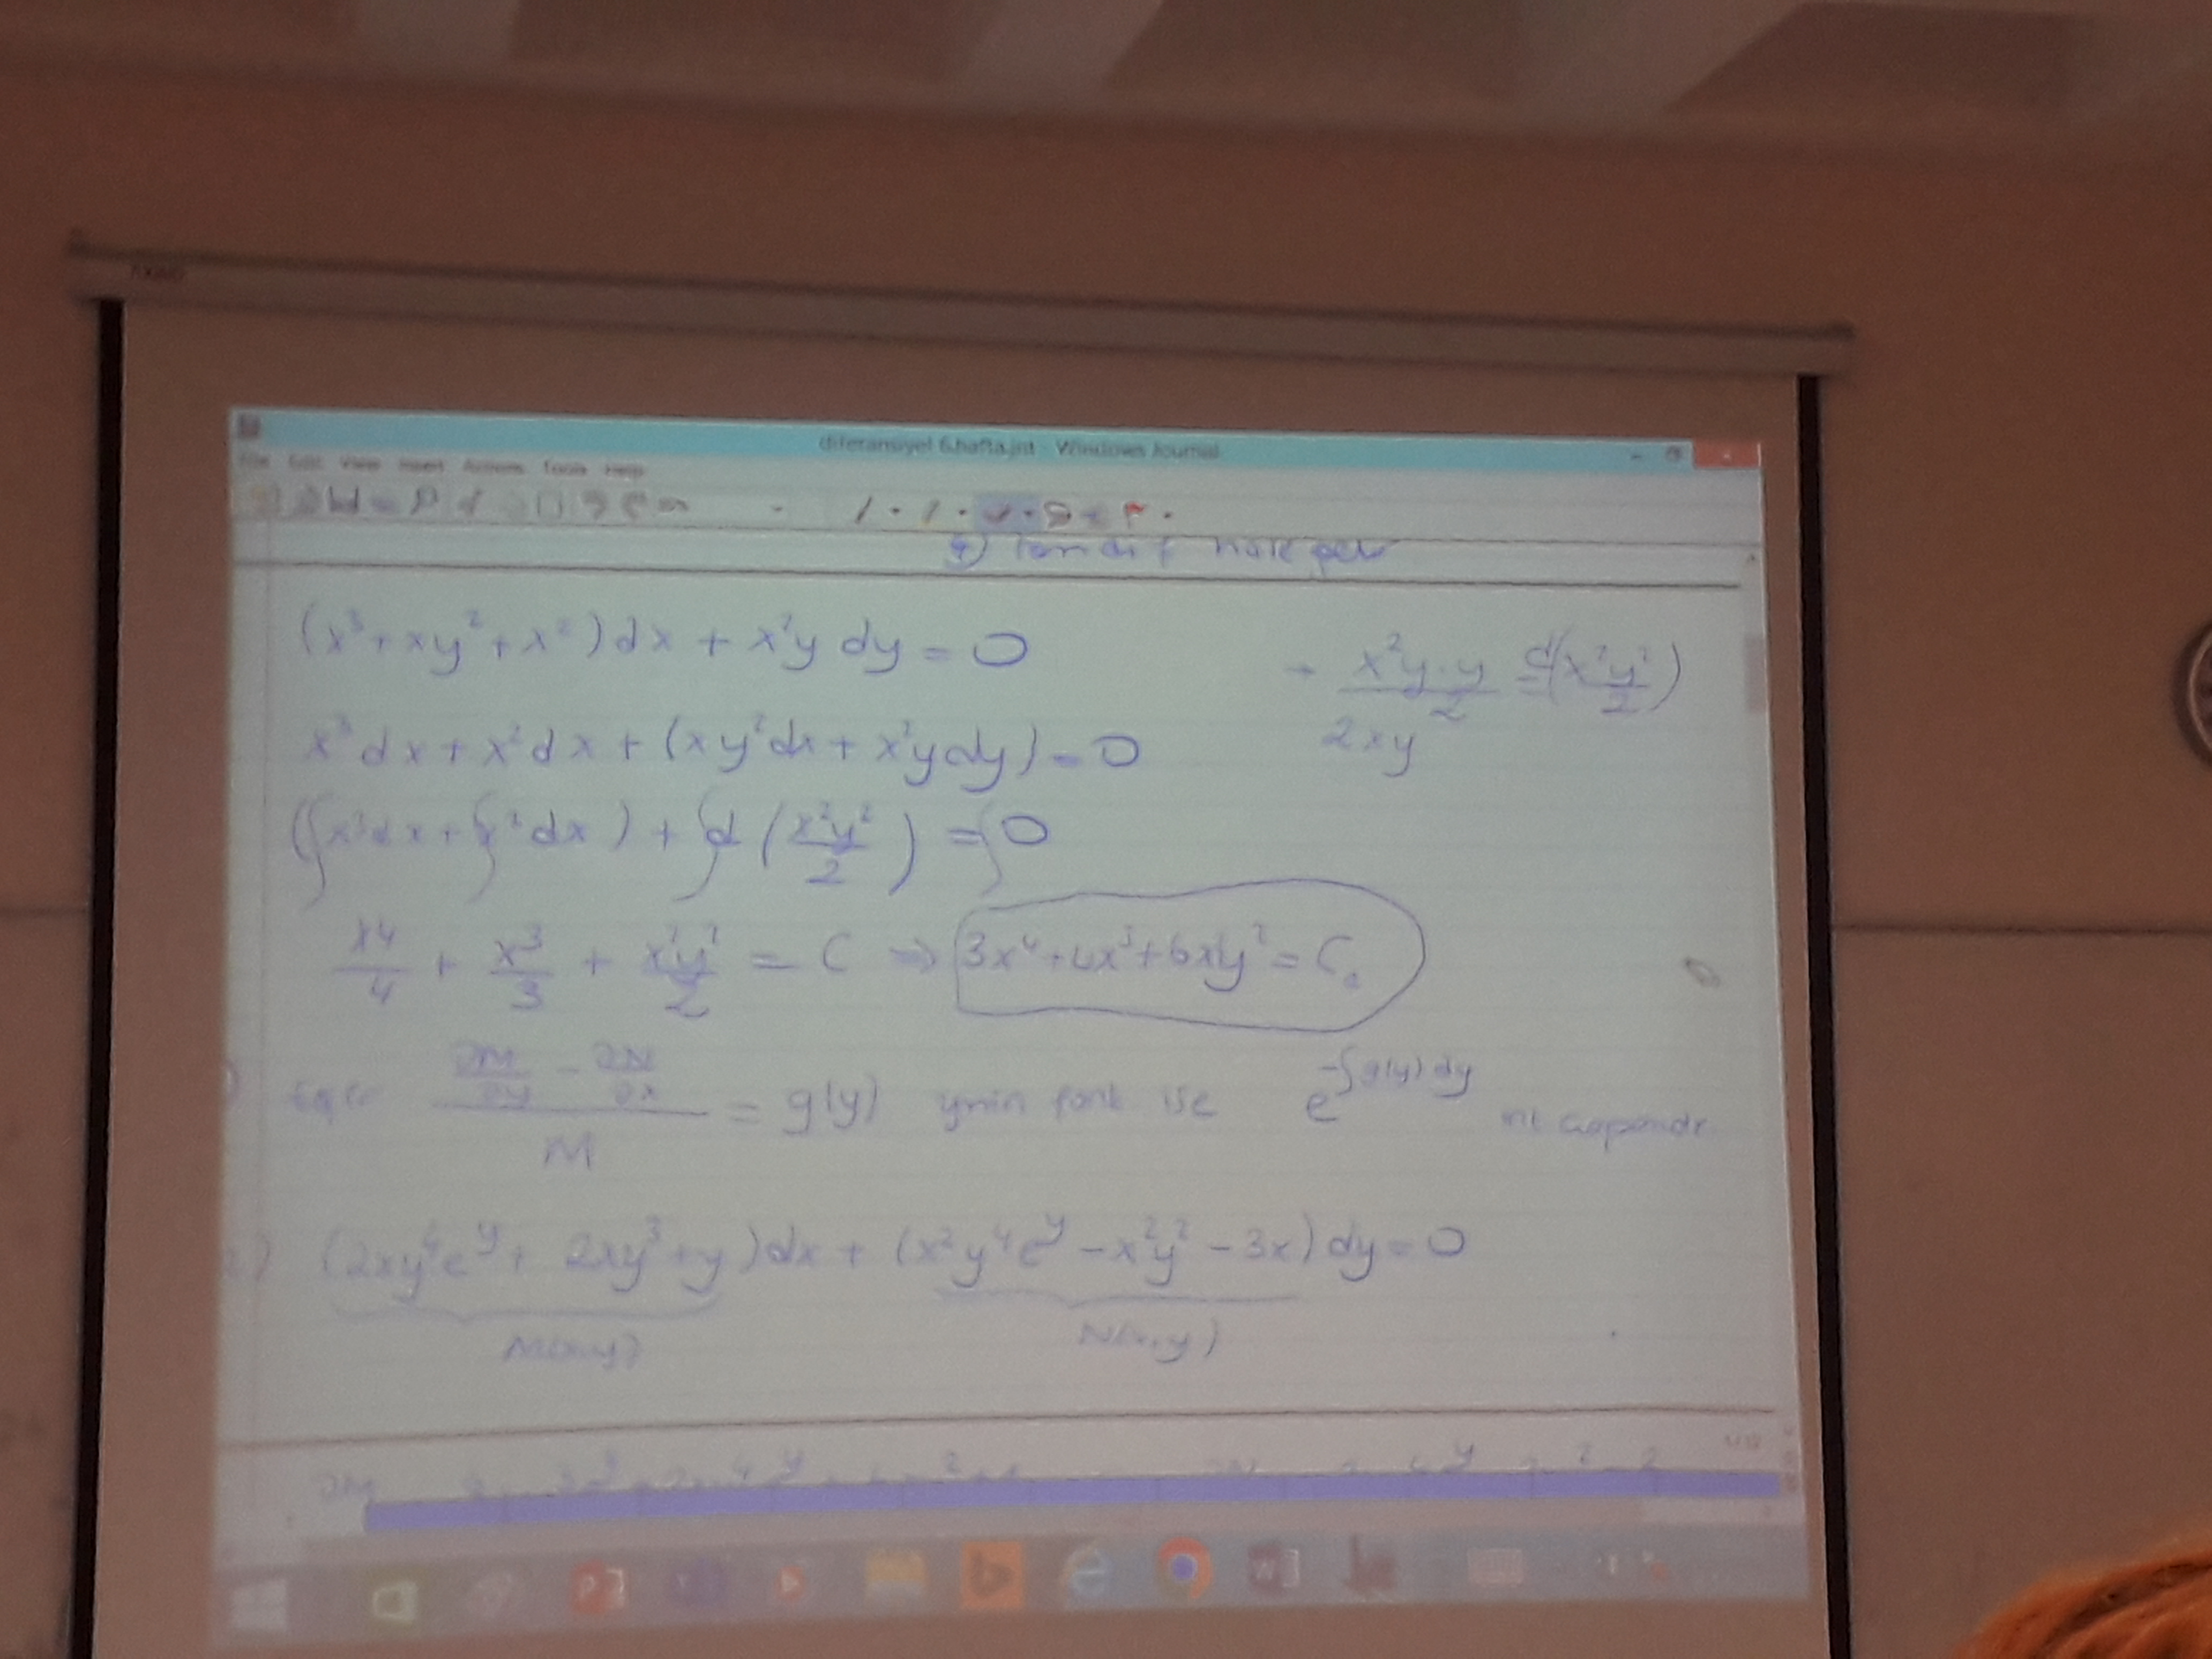 diferansiyel 6.hafta.jnt - Windows Journal
File Edit View Insert Actions Tools Help
(x³ + xy² + x²) dx + x²y dy = 0
→ x²y·y / 2 = d(x²y² / 2)
2xy
x³ dx + x² dx + (xy² dx + x²y dy) = 0
(∫x³ dx + ∫x² dx) + ∫d (x²y² / 2) = ∫0
x4/4 + x³/3 + x²y²/2 = C ⇒ 3x⁴ + 4x³ + 6x²y² = C₀
Eğer (∂M/∂y - ∂N/∂x) / M = g(y) ynin fonk ise e^(-∫g(y) dy) int
(2xy⁴e^y + 2xy³ + y) dx + (x²y⁴e^y - x²y² - 3x) dy = 0
M(x,y) N(x,y)